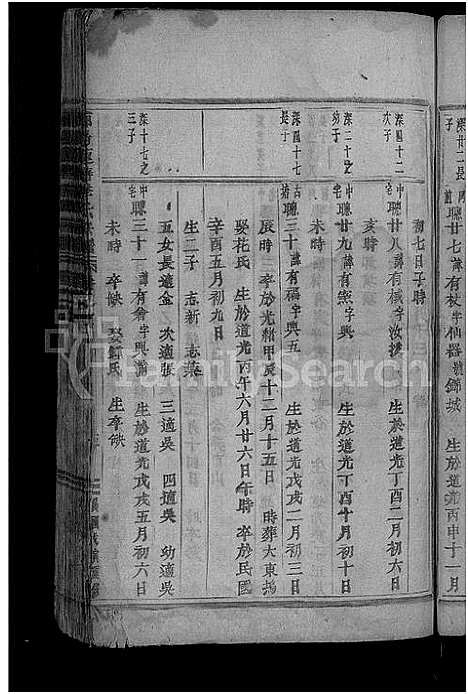 深廿二長
子
聰廿七諱有杖字仙器號錦城 生於道光丙申十一月
初七日子時
深四十二
次子
中聰廿八諱有楲字汝
宅 生於道光丁酉二月初六日
亥時
深二十之
幼子
中聰廿九諱有
宅 字興 生於道光丁酉十月初十日
未時
深四十七
長子
古聰三十諱有福字興五 生於道光戊戌二月初三日
辰時 卒於光緒甲辰十二月十五日 時葬大東塢
娶花氏 生於道光丙午六月廿六日午時 卒於民國
辛酉五月初九日
生二子 志新 志
五女長適金 次適張 三適吳 四適吳 幼適吳
深十七之
三子
中聰三十一諱有
宅 字興 生於道光戊戌五月初六日
未時 卒缺 娶鄭氏 生卒缺
FamilySearch